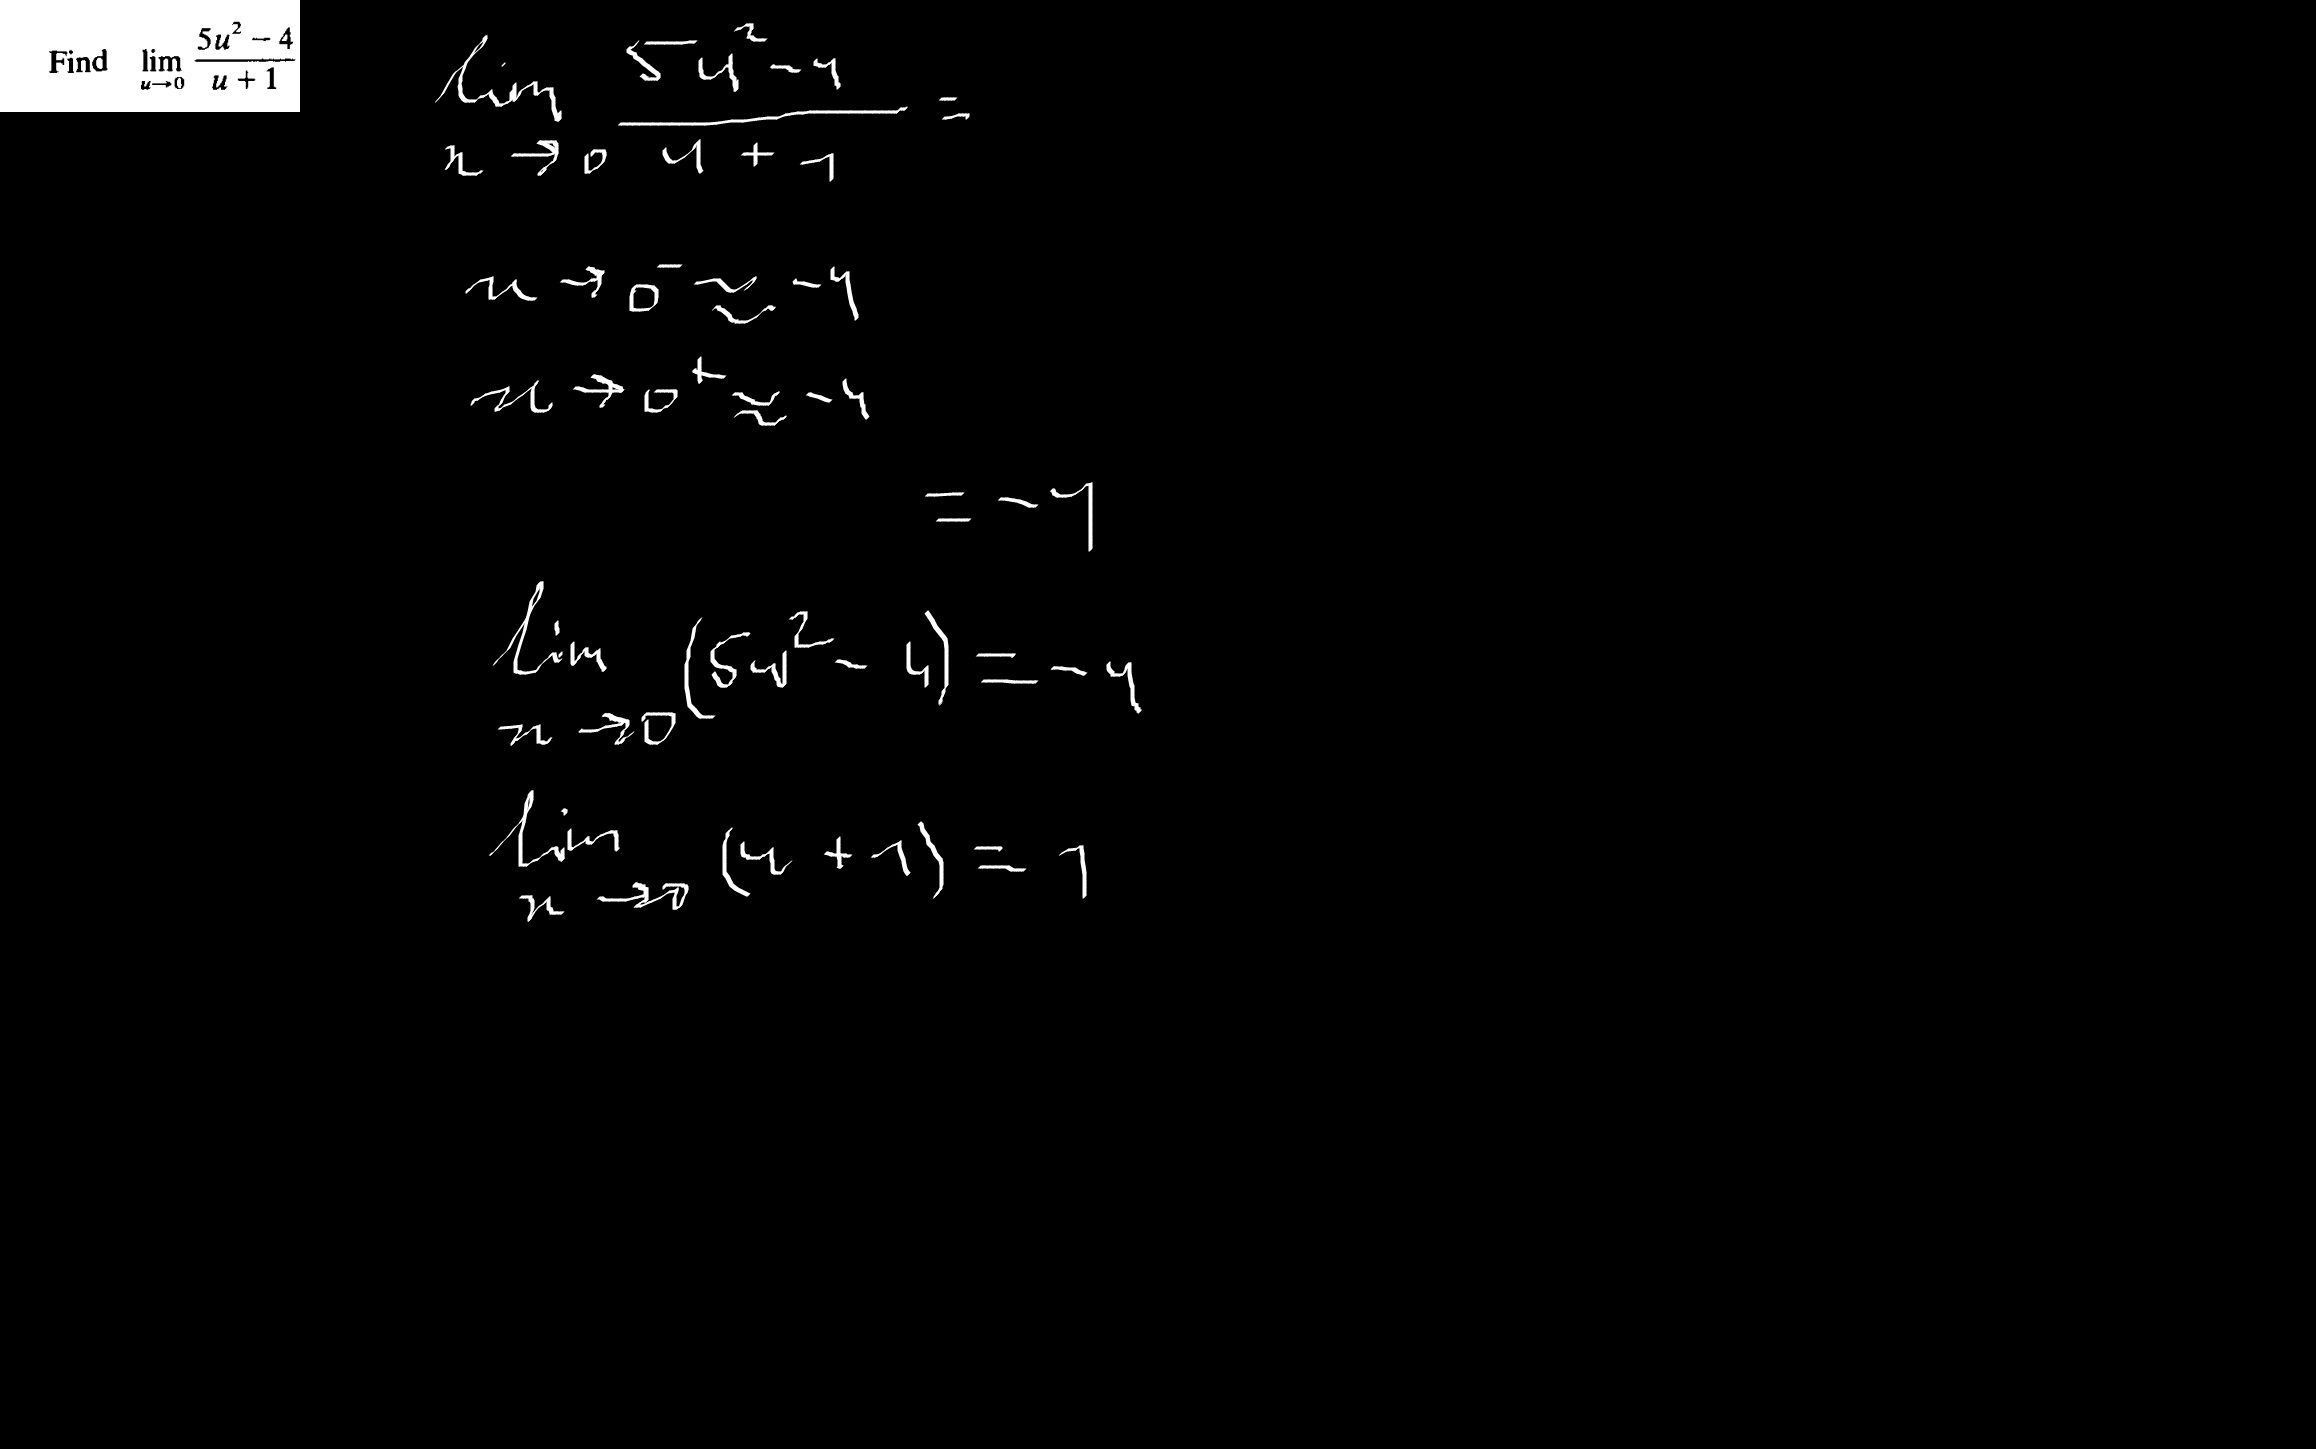 Find lim u→0 (5u² − 4)/(u + 1)
lim x→0 (5u² - 4)/(u + 1) =
x → 0⁻ ≈ -4
x → 0⁺ ≈ -4
= -4
lim x→0 (5u² - 4) = -4
lim x→0 (u + 1) = 1